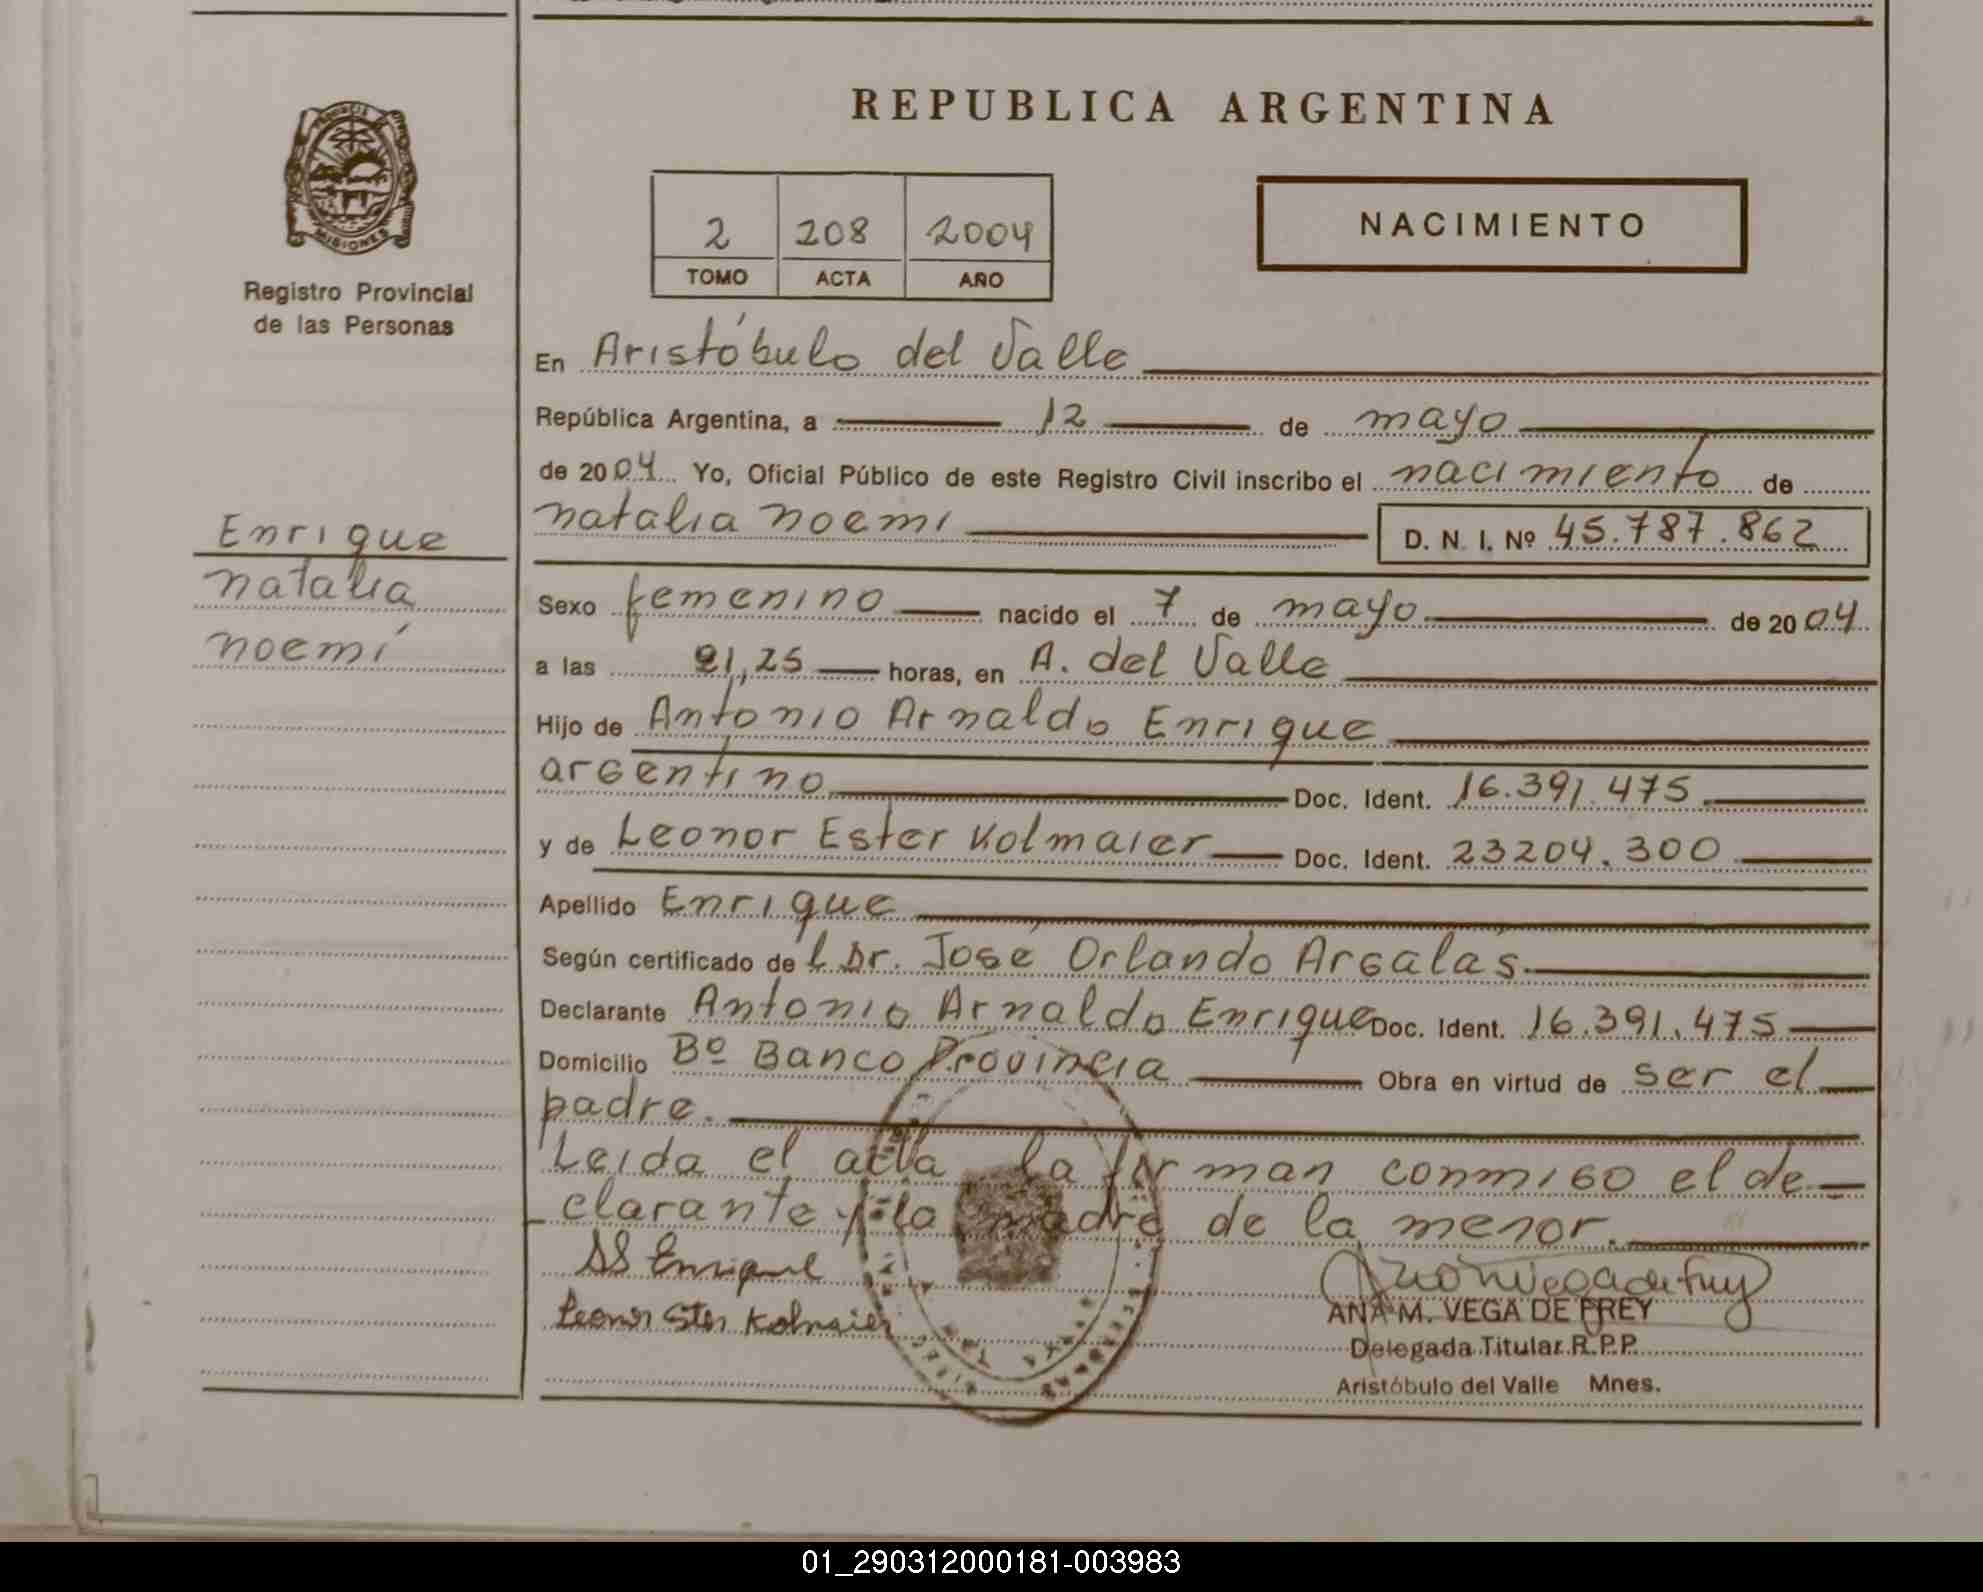 REPUBLICA ARGENTINA
PROVINCIA DE MISIONES
Registro Provincial
de las Personas
2 208 2004
TOMO ACTA AÑO
NACIMIENTO
En Aristóbulo del Valle
República Argentina, a 12 de mayo
de 2004. Yo, Oficial Público de este Registro Civil inscribo el nacimiento de
natalia noemi D. N. I. Nº 45.787.862
Enrique
natalia
noemí
Sexo femenino nacido el 7 de mayo de 2004
a las 21,25 horas, en A. del Valle
Hijo de Antonio Arnaldo Enrique
argentino Doc. Ident. 16.391.475
y de Leonor Ester Kolmaier Doc. Ident. 23204.300
Apellido Enrique
Según certificado del Dr. José Orlando Argalás
Declarante Antonio Arnaldo Enrique Doc. Ident. 16.391.475
Domicilio Bº Banco Provincia Obra en virtud de ser el
padre.
Leida el acta la firman conmigo el de-
clarante y la madre de la menor.
Enrique
Leonor Ester Kolmaier
ANA M. VEGA DE FREY
Delegada Titular R.P.P.
Aristóbulo del Valle Mnes.
01_290312000181-003983